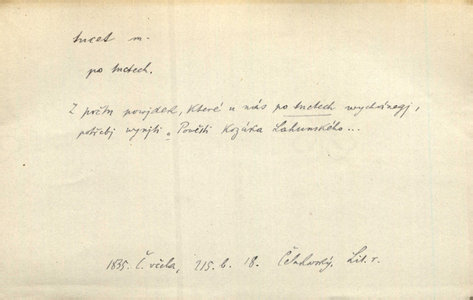 tucet m.
po tuctech.
Z počtu povídek, které u nás po tuctech wycházegj,
potřebj wynjti „Powěsti Kozáka Luhanského...
1835. Č. včela, 215. b. 18. Čelakovský, Lit. r.